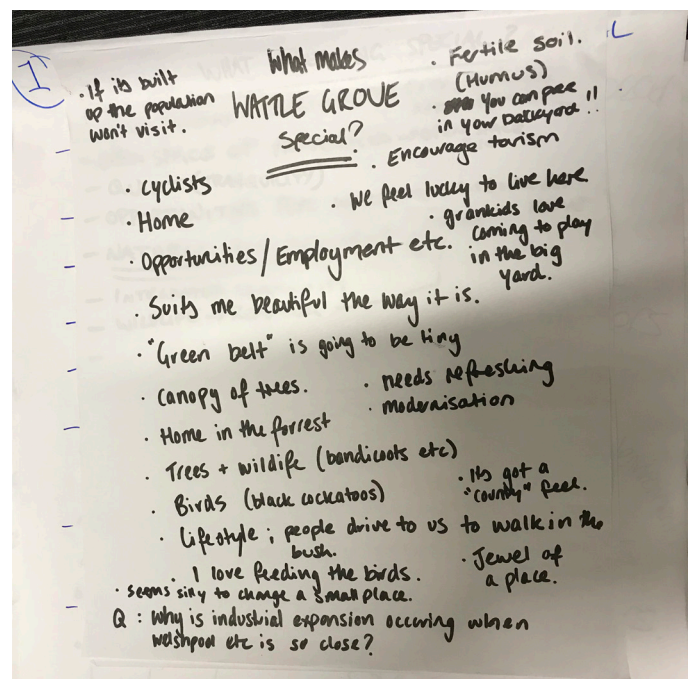 I
What makes
WATTLE GROVE
Special?
· If its built
up the population
won't visit.
· Fertile soil.
(Humus)
· You can pee
in your backyard!!
· Encourage tourism
· cyclists
· We feel lucky to live here
· Home
· grankids love
coming to play
in the big
yard.
· Opportunities / Employment etc.
· Suits me beautiful the way it is.
· "Green belt" is going to be tiny
· canopy of trees.
· needs refreshing
· modernisation
· Home in the forrest
· Trees + wildife (bandicoots etc)
· Birds (black cockatoos)
· Its got a
"county" feel.
· Lifestyle ; people drive to us to walk in the
bush.
· Jewel of
a place.
· I love feeding the birds.
· seems silly to change a small place.
Q : Why is industrial expansion occuring when
welshpool etc is so close?